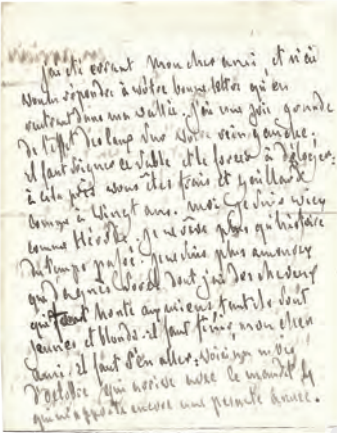 j'ai été errant mon cher ami et n'ai
voulu répondre à votre bonne lettre qu'en
rentrant dans ma vallée. j'ai une joie grande
de l'effet des eaux sur votre rein gauche.
il faut soigner ce sable et le forcer à déloger:
à cela près vous êtes frais et gaillard
comme à vingt ans. moi je suis vieux
comme Hérode. je ne rêve plus qu'histoire
du temps passé. je ne suis plus amoureux
que d'agnès Sorel dont j'ai des cheveux
qui font honte aux miens tant ils sont
jeunes et blonds. il faut finir mon cher
ami; il faut s'en aller: voici mon mois
d'octobre qui arrive avec ce maudit 4
qui m'apporte encore une pesante année.